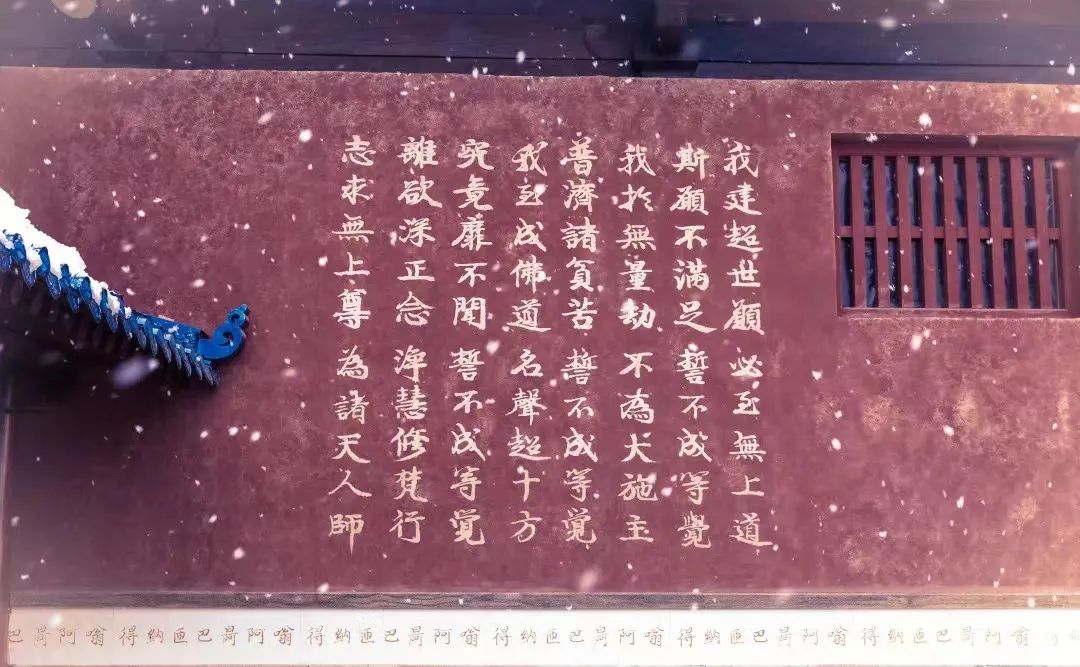 我建超世願 必至無上道
斯願不滿足 誓不成等覺
我於無量劫 不為大施主
普濟諸貧苦 誓不成等覺
我至成佛道 名聲超十方
究竟靡不聞 誓不成等覺
離欲深正念 淨慧修梵行
志求無上尊 為諸天人師
嗡阿曷巴匝納得 嗡阿曷巴匝納得 嗡阿曷巴匝納得 嗡阿曷巴匝納得 嗡阿曷巴匝納得 嗡阿曷巴